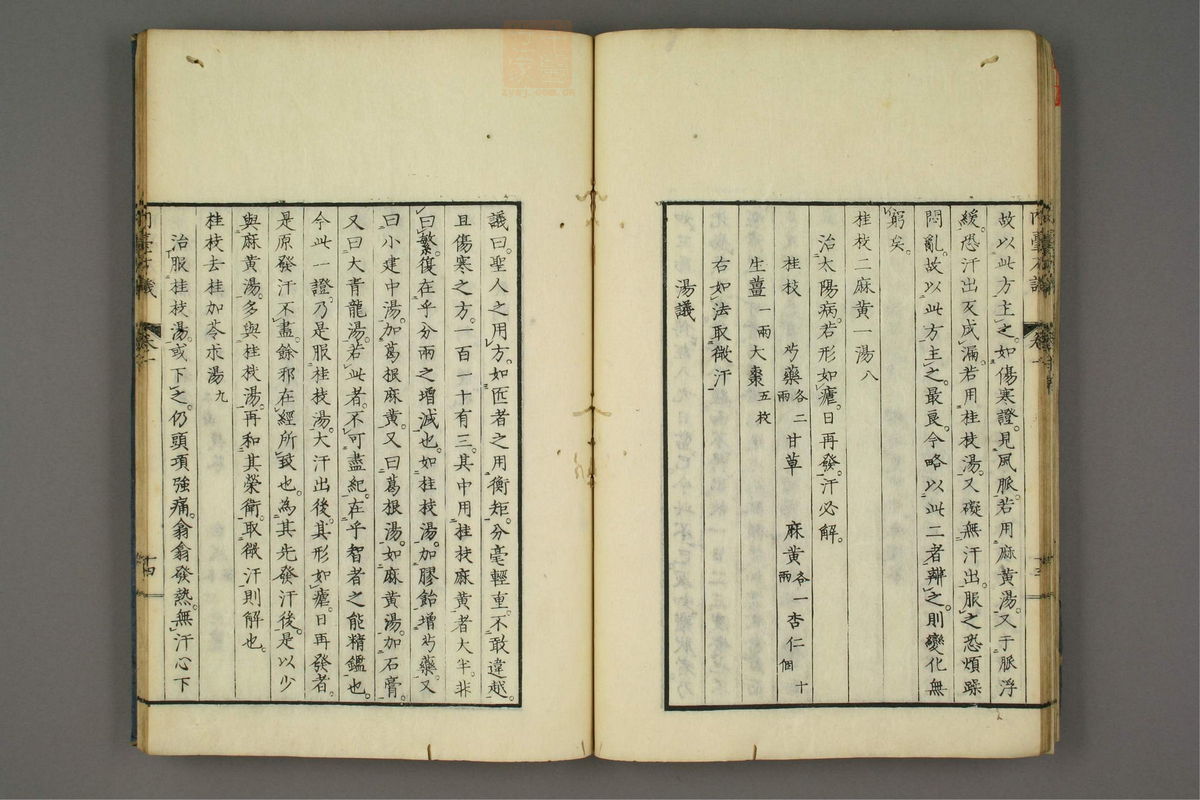 故以此方主之。如傷寒證。見風脈。若用麻黃湯。又于脈浮
緩。恐汗出反成漏。若用桂枝湯。又礙無汗出。服之恐煩躁
悶亂。故以此方主之。最良。今略以此二者辯之。則變化無
窮矣。
桂枝二麻黃一湯八
治太陽病。若形如瘧。日再發。汗必解。
桂枝 芍藥各二兩 甘草 麻黃各一兩 杏仁十個
生薑一兩 大棗五枚
右如法取微汗
湯議
議曰。聖人之用方。如匠者之用衡矩。分毫輕重。不敢違越。
且傷寒之方。一百一十有三。其中用桂枝麻黃者大半。非
曰繁。復在乎分兩之增減也。如桂枝湯。加膠飴增芍藥。又
曰小建中湯。加葛根麻黃。又曰葛根湯。如麻黃湯。加石膏。
又曰大青龍湯。若此者。不可盡紀。在乎智者之能精鑑也。
今此一證。乃是服桂枝湯。大汗出後。其形如瘧。日再發者。
是原發汗不盡。餘邪在經所致也。為其先發汗後。是以少
與麻黃湯。多與桂枝湯。再和其榮衛。取微汗則解也。
桂枝去桂加苓朮湯九
治服桂枝湯。或下之。仍頭項強痛。翕翕發熱。無汗心下
十四